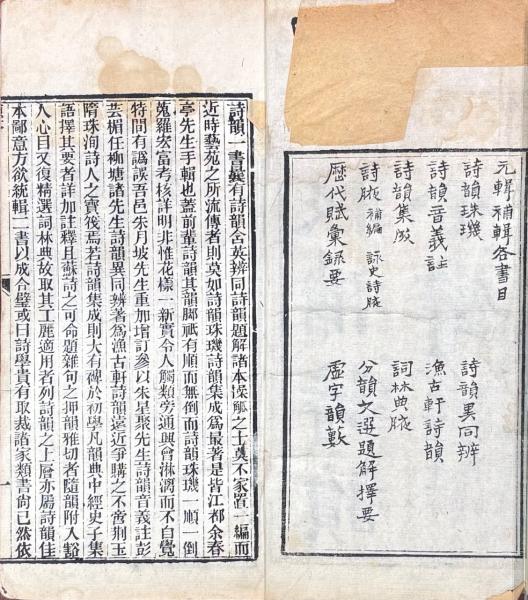 元輯補輯各書目
詩韻珠璣
詩韻異同辨
詩韻音義註
漁古軒詩韻
詩韻集成
詞林典腋
詩腋 補編 詠史詩腋
分韻文選題解擇要
歷代賦彙錄要
虛字韻藪
詩韻一書曩有詩韻含英辨同詩韻題解諸本操觚之士莫不家置一編而
近時藝苑之所流傳者則莫如詩韻珠璣詩韻集成為最著是皆江都余春
亭先生手輯也蓋前輩詩韻其韻脚祗有順而無倒而詩韻珠璣一順一倒
蒐羅宏富考核詳明非惟花樣一新實令人觸類旁通興會淋漓而不自覺
特間有譌誤吾邑朱月坡先生重加增訂參以朱星聚先生詩韻音義註彭
芸楣任柳塘諸先生詩韻異同辨著為漁古軒詩韻遠近爭購之不啻荆玉
隋珠洵詩人之寶後焉若詩韻集成則大有裨於初學凡韻典中經史子集
語擇其要者詳加註釋且蘇詩之可命題雜句之押韻雅切者隨韻附入豁
人心目又復精選詞林典故取其工麗適用者列詩韻之上層亦屬詩韻佳
本鄙意方欲統輯二書以成合璧或曰詩學貴有取裁諸家類書尚已然依
一